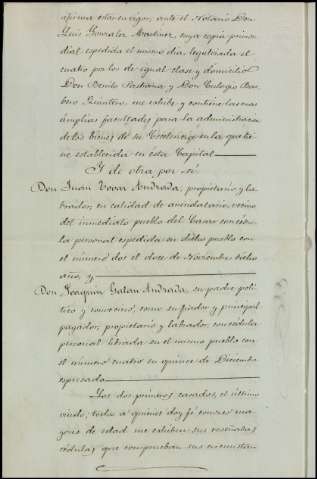 afirma estar en vigor, ante el Notario Don
Luis Gonzalez Martinez, cuya copia primor-
dial expedida el mismo dia, legalizada el
cuatro por los de igual clase y domicilio
Don Benito Pastrana, y Don Eulogio Bar-
bero Quintero, me exhibe y contiene las mas
amplias facultades para la administracion
de los bienes de su Excelencia en la que tie-
ne establecida en esta Capital
Y de otra por si
Don Juan Tovar Andrada, propietario y la-
brador, en calidad de arrendatario, vecino
del inmediato pueblo del Casar con cedu-
la personal expedida en dicho pueblo con
el numero dos el doce de Noviembre dicho
año, y
Don Joaquin Galan Andrada, su padre poli-
tico y convecino, como su fiador y principal
pagador, propietario y labrador, con cedula
personal librada en el mismo pueblo con
el numero cuatro en quince de Diciembre
espresado
Los dos primeros casados, el ultimo
viudo, todos a quienes doy fe conozco ma-
yores de edad me exhiben sus reseñadas
cedulas que comprueban sus circunstan-